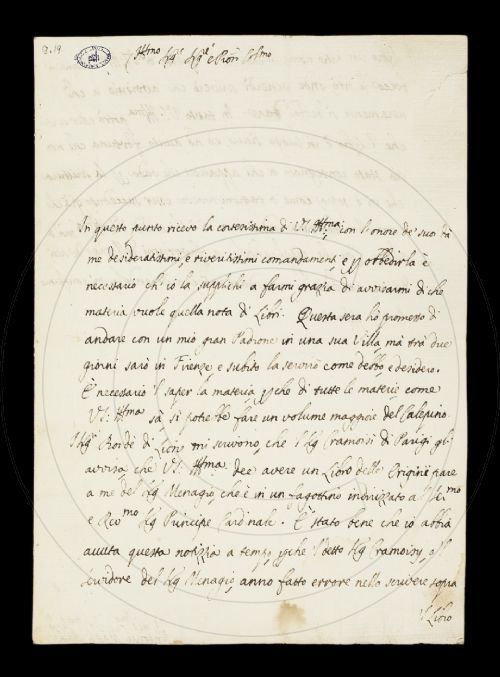 Ill.mo Sig.re Sig.re e Pron Col.mo
In questo punto ricevo la cortesissima di VS: Ill.ma: con l'onore de' suoi da
me desideratissimi, e riveritissimi comandamenti, e p obbedirla è
necessario ch'io la supplichi a farmi grazia di avvisarmi di che
materia vuole quella nota di Libri. Questa sera hò promesso di
andare con un mio gran Padrone in una sua Villa, mà trà due
giorni sarò in Firenze e subito la servirò come debbo e desidero.
È necessario il saper la materia, pche di tutte le materie come
VS: Ill.ma sà, si potrebbe fare un volume maggiore del Calepino.
di Lione mi scrivono, che il Sig. Cramoisi di Parigi gli
avvisa che VS: Ill.ma dee avere un Libro delle Origini
a me del Sig. Menagio, che è in un fagottino indirizzato al
e Rev.mo Sig. Principe Cardinale. È stato bene che io abbia
avuta questa notizia a tempo, pche il detto Sig. Cramoisy, o il
servidore del Sig. Menagio, anno fatto errore nello scrivere sopra
il Libro